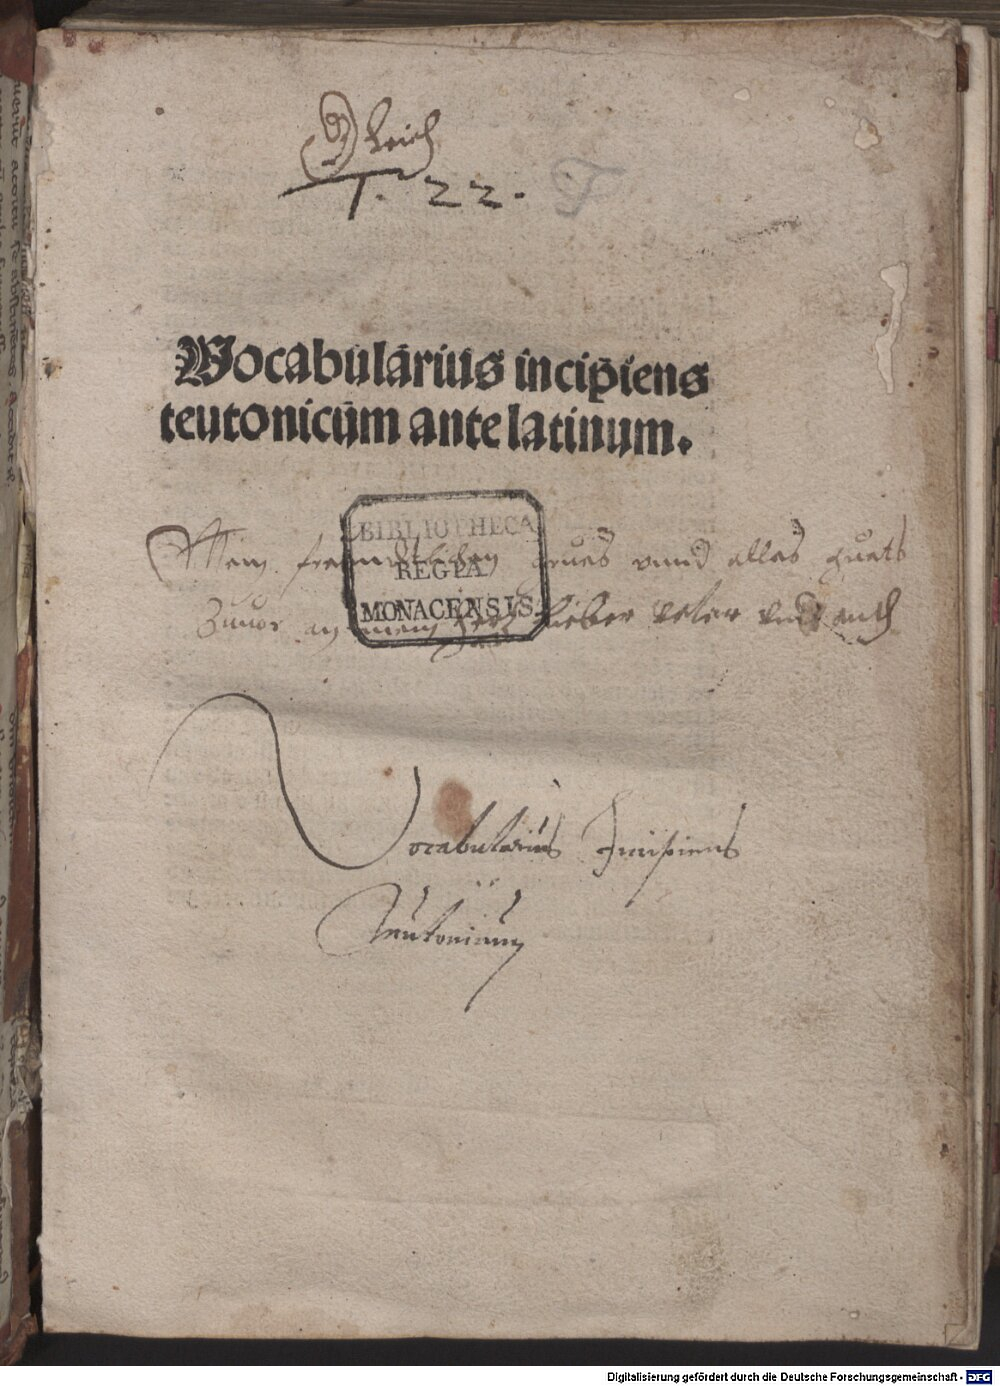 Reich
T. 22. F
Vocabularius incipiens
teutonicum ante latinum.
BIBLIOTHECA
REGIA
MONACENSIS
Mein freundtlichen grues vnnd alles guets
Zuuor an mein hertz lieber veter vnd auch
Vocabularius Incipiens
Teutonicum
Digitalisierung gefördert durch die Deutsche Forschungsgemeinschaft - DFG